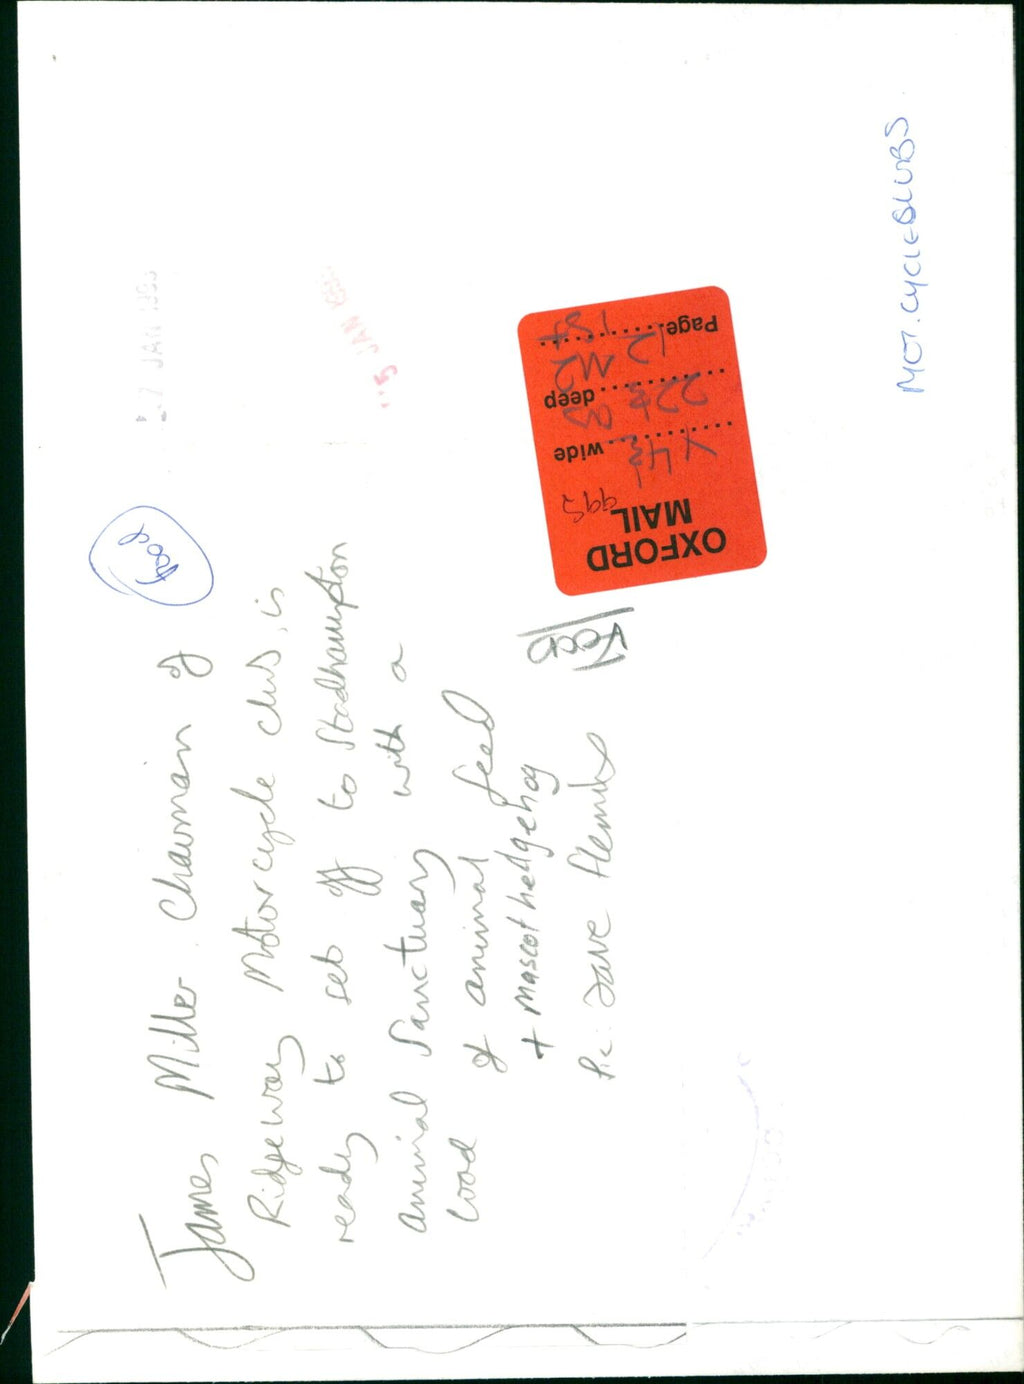 James Miller Chairman of
Ridgeway Motorcycle club, is
ready to set off to Stadhampton
animal Sanctuary with a
load of animal feed
+ mascot hedgehog
Pic: Dave Fleming
food
Food
OXFORD
MAIL
995
X 4½ wide
22 deep
Page 12 M2
1st
JAN
5 JAN
MOT. CYCLE CLUBS